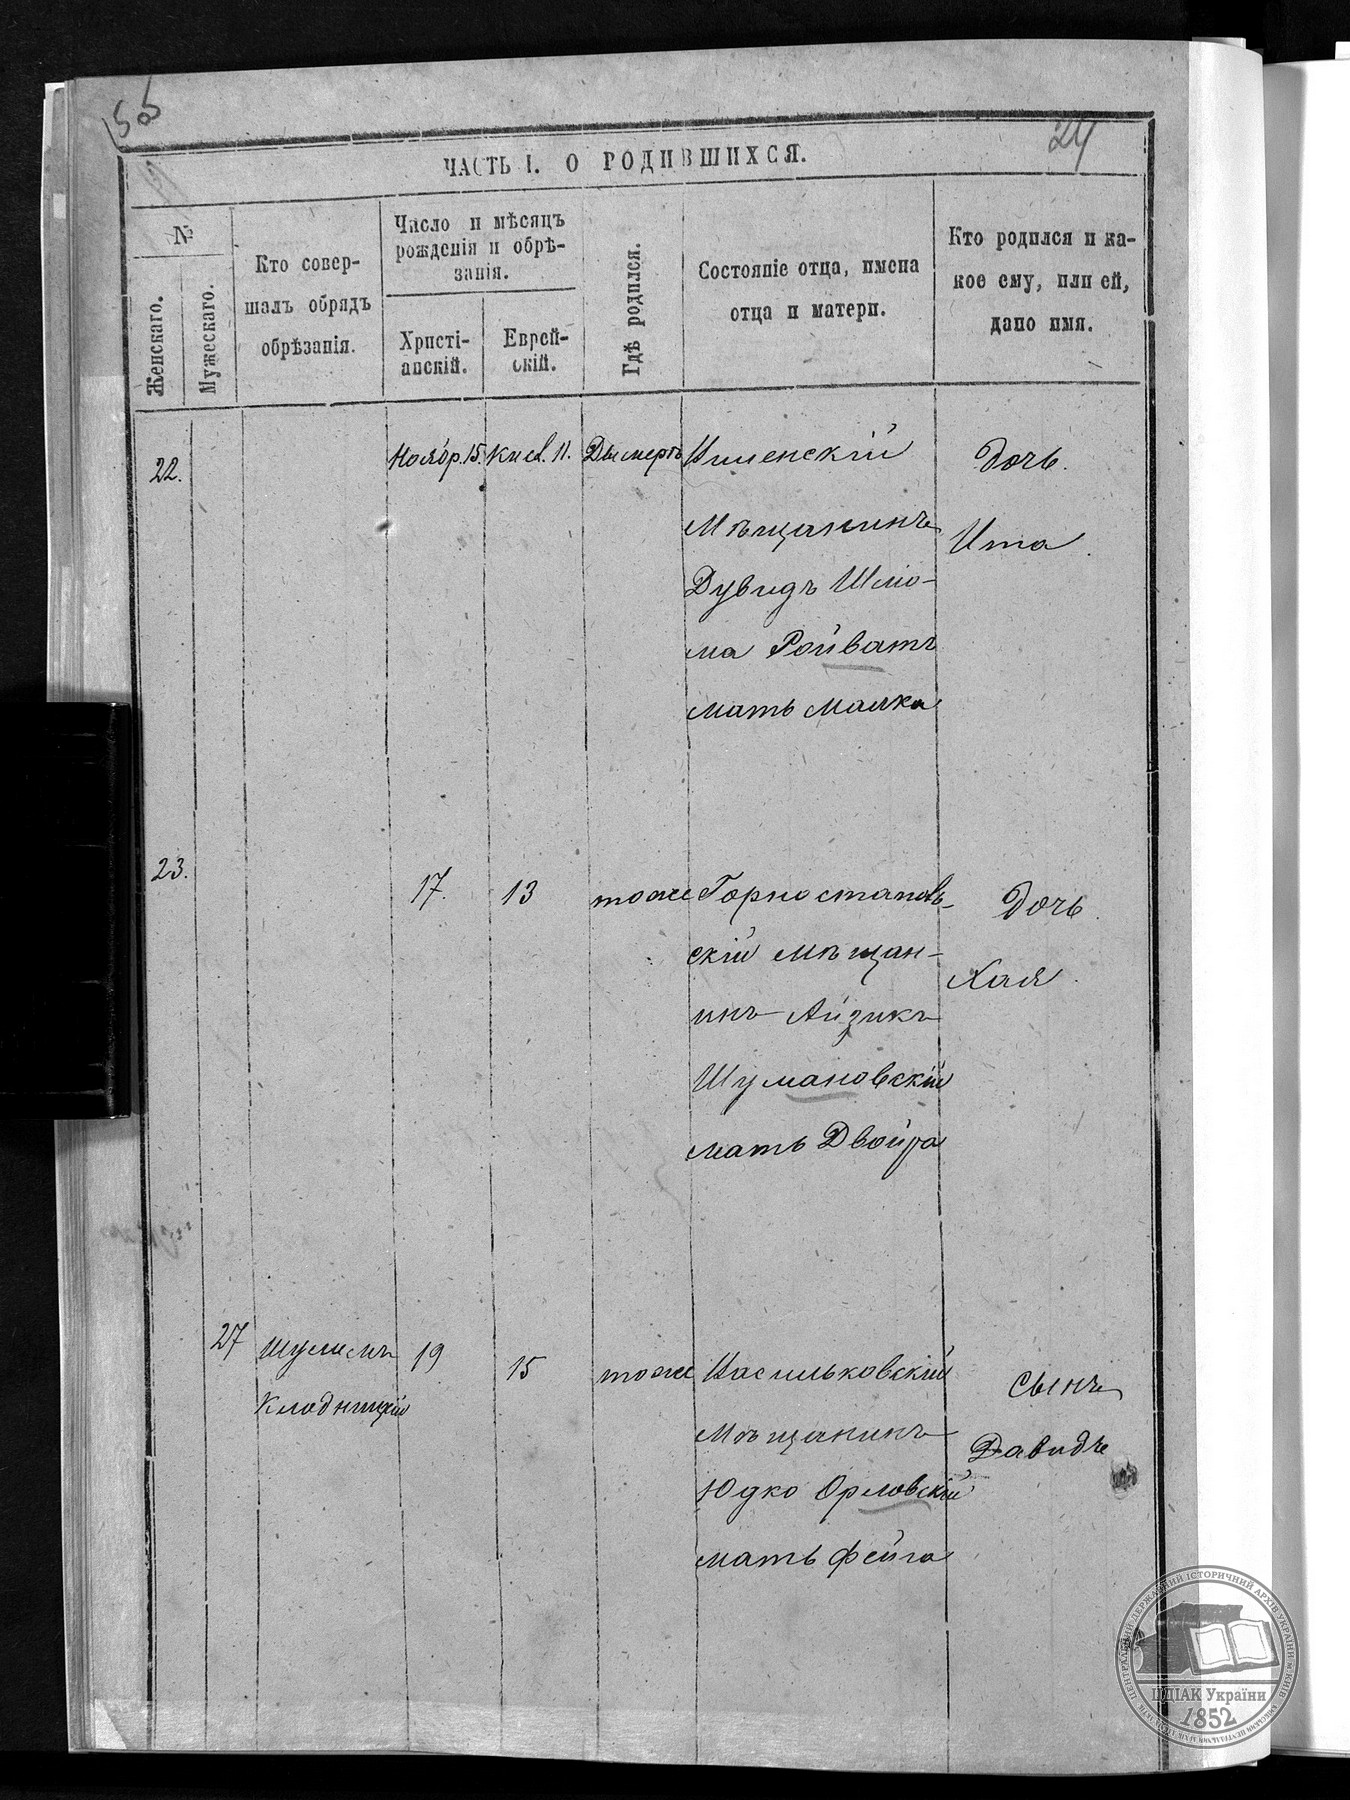 56
24
ЧАСТЬ I. О РОДИВШИХСЯ.
№
Женскаго.
Мужескаго.
Кто совер-
шалъ обрядъ
обрѣзанія.
Число и мѣсяцъ
рожденія и обрѣ-
занія.
Христі-
анскій.
Еврей-
скій.
Гдѣ родился.
Состояніе отца, имена
отца и матери.
Кто родился и ка-
кое ему, или ей,
дано имя.
22.
Ноябр. 15.
Кисл. 11.
Дымеръ
Мѣщанинъ
Дувидъ Шлио-
ма Ройватъ
мать Малка
дочь.
Ита
23.
17.
13
тоже
Горностапов-
скій мѣщан-
инъ Айзикъ
Шумановскій
мать Двойра
дочь
Хая
27
Шулимъ
19
15
тоже
Васильковскій
мѣщанинъ
Юдко Орловскій
мать Фейга
сынъ
Давидъ
ЦЕНТРАЛЬНИЙ ДЕРЖАВНИЙ ІСТОРИЧНИЙ АРХІВ УКРАЇНИ М. КИЇВ
ЦДІАК України
1852